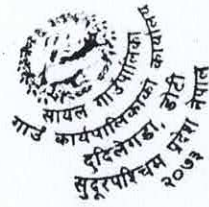 सायल गाउँपालिका
गाउँ कार्यपालिकाको कार्यालय
ददिलेगडा, डोटी
सुदूरपश्चिम प्रदेश नेपाल
२०७३